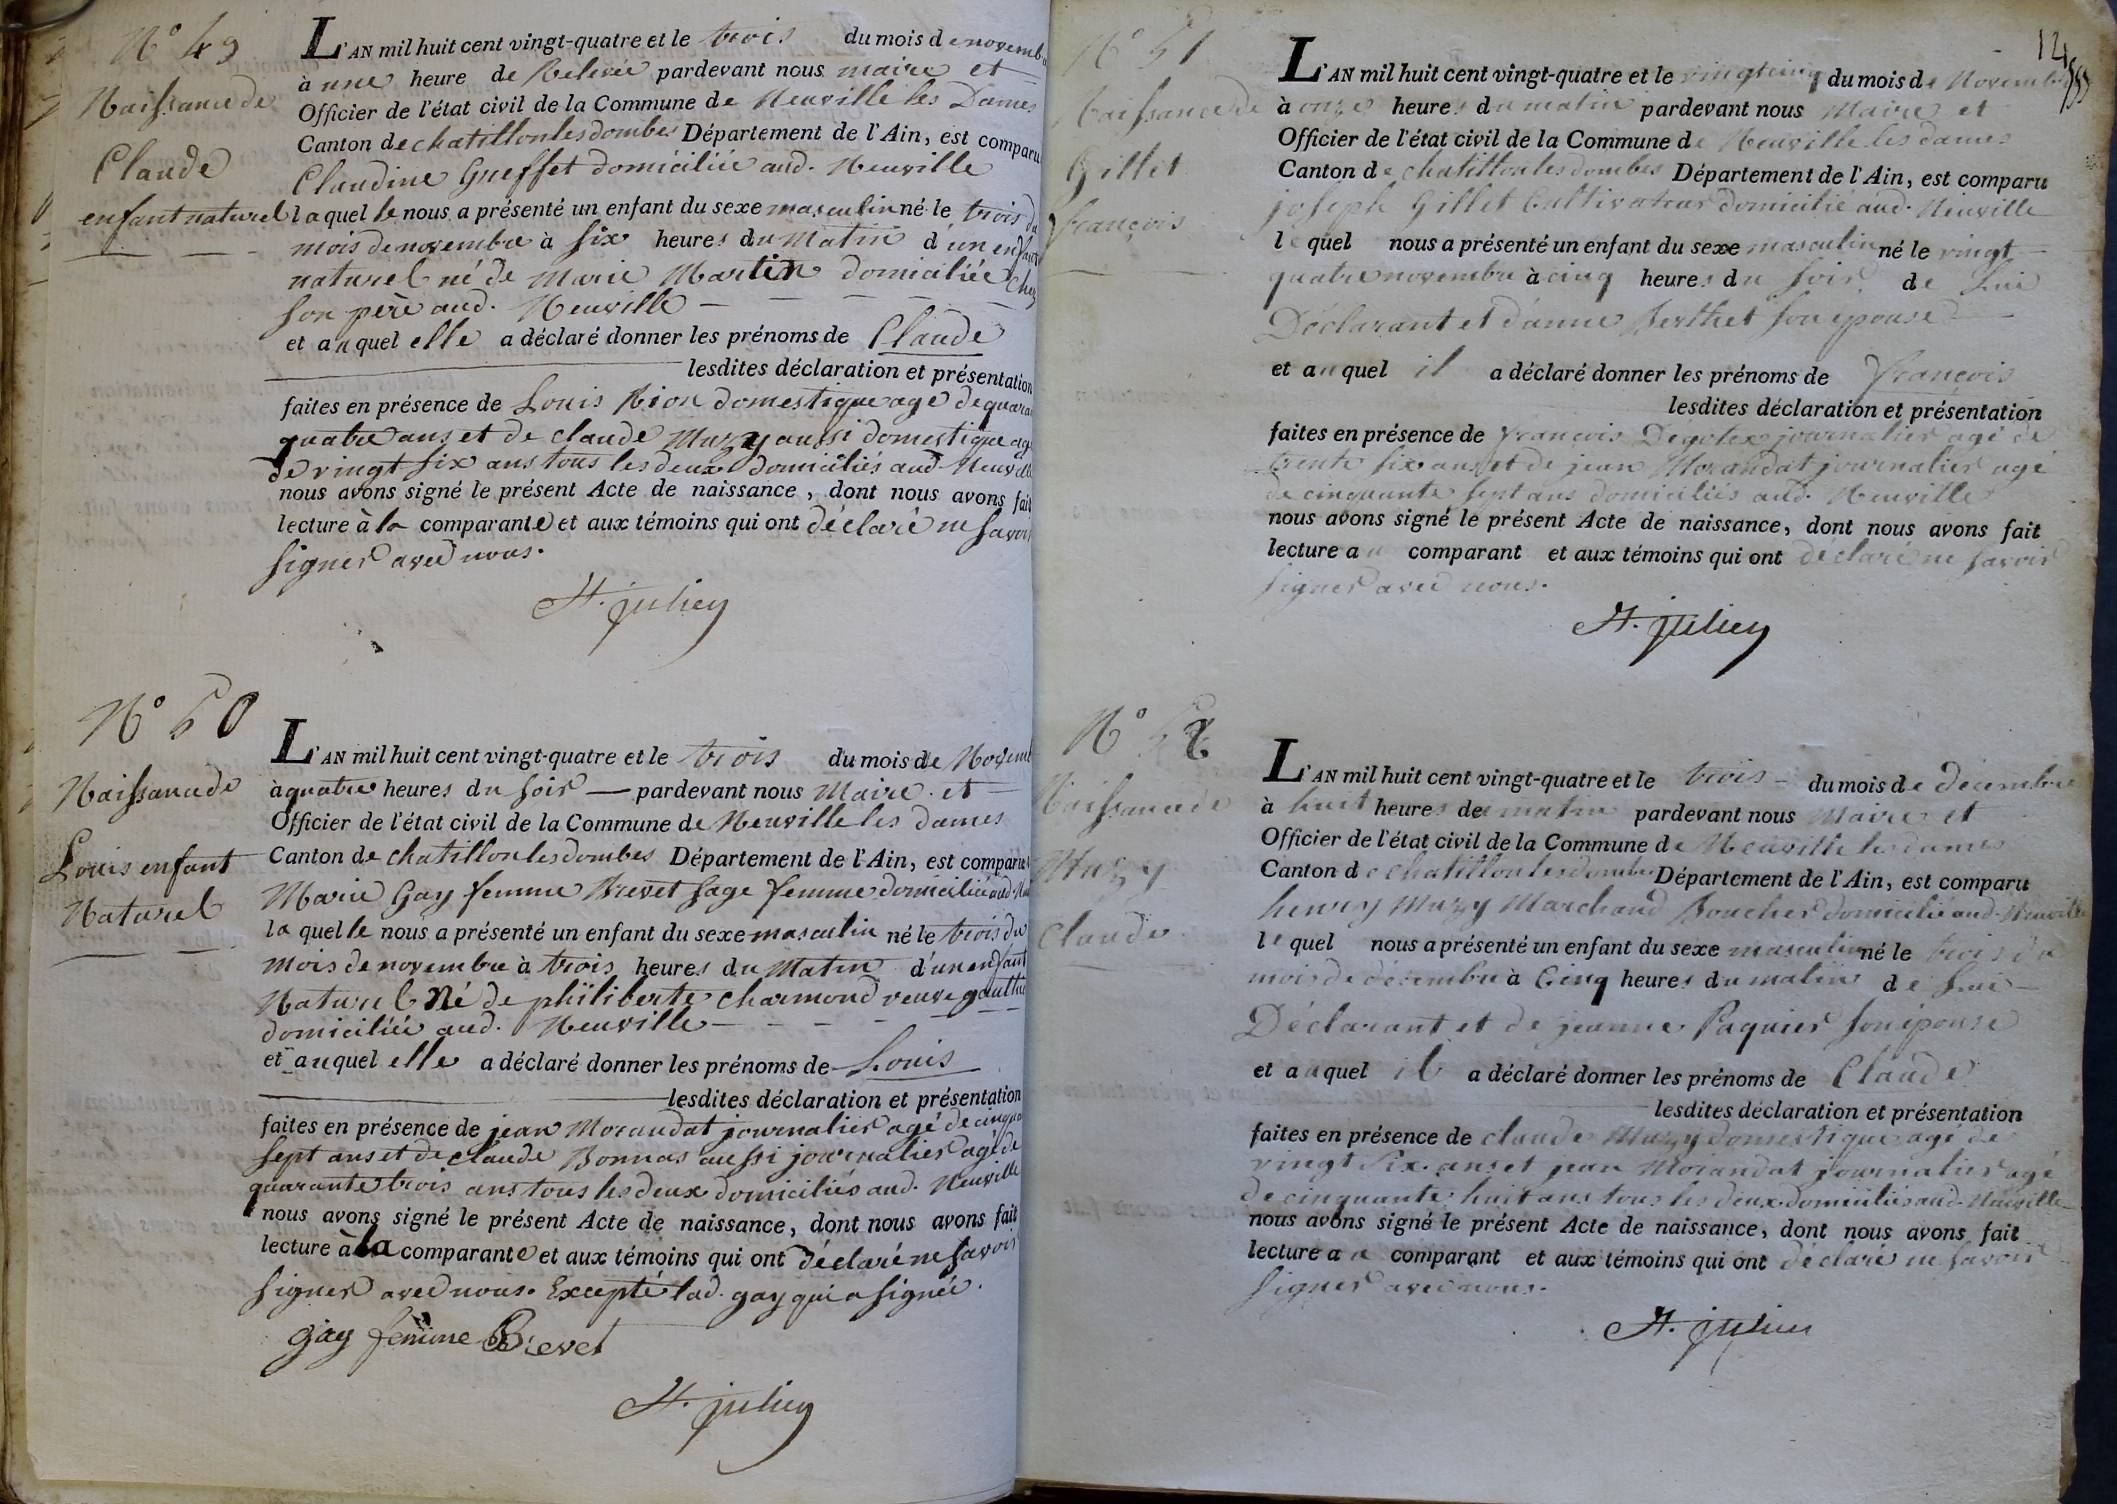 N° 49
Naissance de
Claude
enfant naturel
L'AN mil huit cent vingt-quatre et le trois du mois de novemb
à une heure de Relevée pardevant nous maire et
Officier de l'état civil de la Commune de Neuville les Dames
Canton de chatillon les dombes Département de l'Ain, est comparu
Claudine Gueffet domiciliée aud. Neuville
laquelle nous a présenté un enfant du sexe masculin né le trois du
mois de novembre à six heures du Matin d'un enfant
naturel né de Marie Martin domiciliée chez
son père aud. Neuville
et auquel elle a déclaré donner les prénoms de Claude
lesdites déclaration et présentation
faites en présence de Louis Rion domestique agé de quara
quatre ans et de claude Muzy aussi domestique agé
de vingt six ans tous les deux domiciliés aud. Neuville
nous avons signé le présent Acte de naissance, dont nous avons fait
lecture à la comparante et aux témoins qui ont déclaré ne savoir
signer avec nous.
St. julien
N° 50
Naissance de
Louis enfant
Naturel
L'AN mil huit cent vingt-quatre et le trois du mois de Novemb
à quatre heures du soir pardevant nous Maire et
Officier de l'état civil de la Commune de Neuville les dames
Canton de chatillon les dombes Département de l'Ain, est comparu
Marie Gay femme Brevet sage femme domiciliée aud. Neu
laquelle nous a présenté un enfant du sexe masculin né le trois du
mois de novembre à trois heures du Matin d'un enfant
Naturel Né de philiberte charmond veuve gauthie
domiciliée aud. Neuville
et auquel elle a déclaré donner les prénoms de Louis
lesdites déclaration et présentation
faites en présence de jean Morandat journalier agé de cinqua
sept ans et de claude Bonnas aussi journalier agé de
quarante trois ans tous les deux domiciliés aud. Neuville
nous avons signé le présent Acte de naissance, dont nous avons fait
lecture à la comparante et aux témoins qui ont déclaré ne savoir
signer avec nous. Excepté lad. gay qui a signée.
gay femme Brevet
St. julien
14
N° 51
Naissance de
Gillet
françois
L'AN mil huit cent vingt-quatre et le vingt cinq du mois de Novembre
à onze heures du matin pardevant nous Maire et
Officier de l'état civil de la Commune de Neuville les dames
Canton de chatillon les dombes Département de l'Ain, est comparu
joseph Gillet Cultivateur domicilié aud. Neuville
lequel nous a présenté un enfant du sexe masculin né le vingt
quatre novembre à cinq heures du soir de Lui
Déclarant et d'anne Berthet son épouse
et auquel il a déclaré donner les prénoms de françois
lesdites déclaration et présentation
faites en présence de françois Degotex journalier agé de
trente six ans et de jean Morandat journalier agé
de cinquante sept ans domiciliés aud. Neuville
nous avons signé le présent Acte de naissance, dont nous avons fait
lecture au comparant et aux témoins qui ont déclaré ne savoir
signer avec nous.
St. julien
N° 52
Naissance de
Muzy
Claude
L'AN mil huit cent vingt-quatre et le trois du mois de décembre
à huit heures du matin pardevant nous Maire et
Officier de l'état civil de la Commune de Neuville les dames
Canton de chatillon les dombes Département de l'Ain, est comparu
henry Muzy Marchand Boucher domicilié aud. Neuville
lequel nous a présenté un enfant du sexe masculin né le trois du
mois de décembre à Cinq heures du matin de Lui
Déclarant et de jeanne Paquier son épouse
et auquel il a déclaré donner les prénoms de Claude
lesdites déclaration et présentation
faites en présence de claude Muzy domestique agé de
vingt six ans et jean Morandat journalier agé
de cinquante huit ans tous les deux domiciliés aud. Neuville
nous avons signé le présent Acte de naissance, dont nous avons fait
lecture au comparant et aux témoins qui ont déclaré ne savoir
signer avec nous.
St. julien